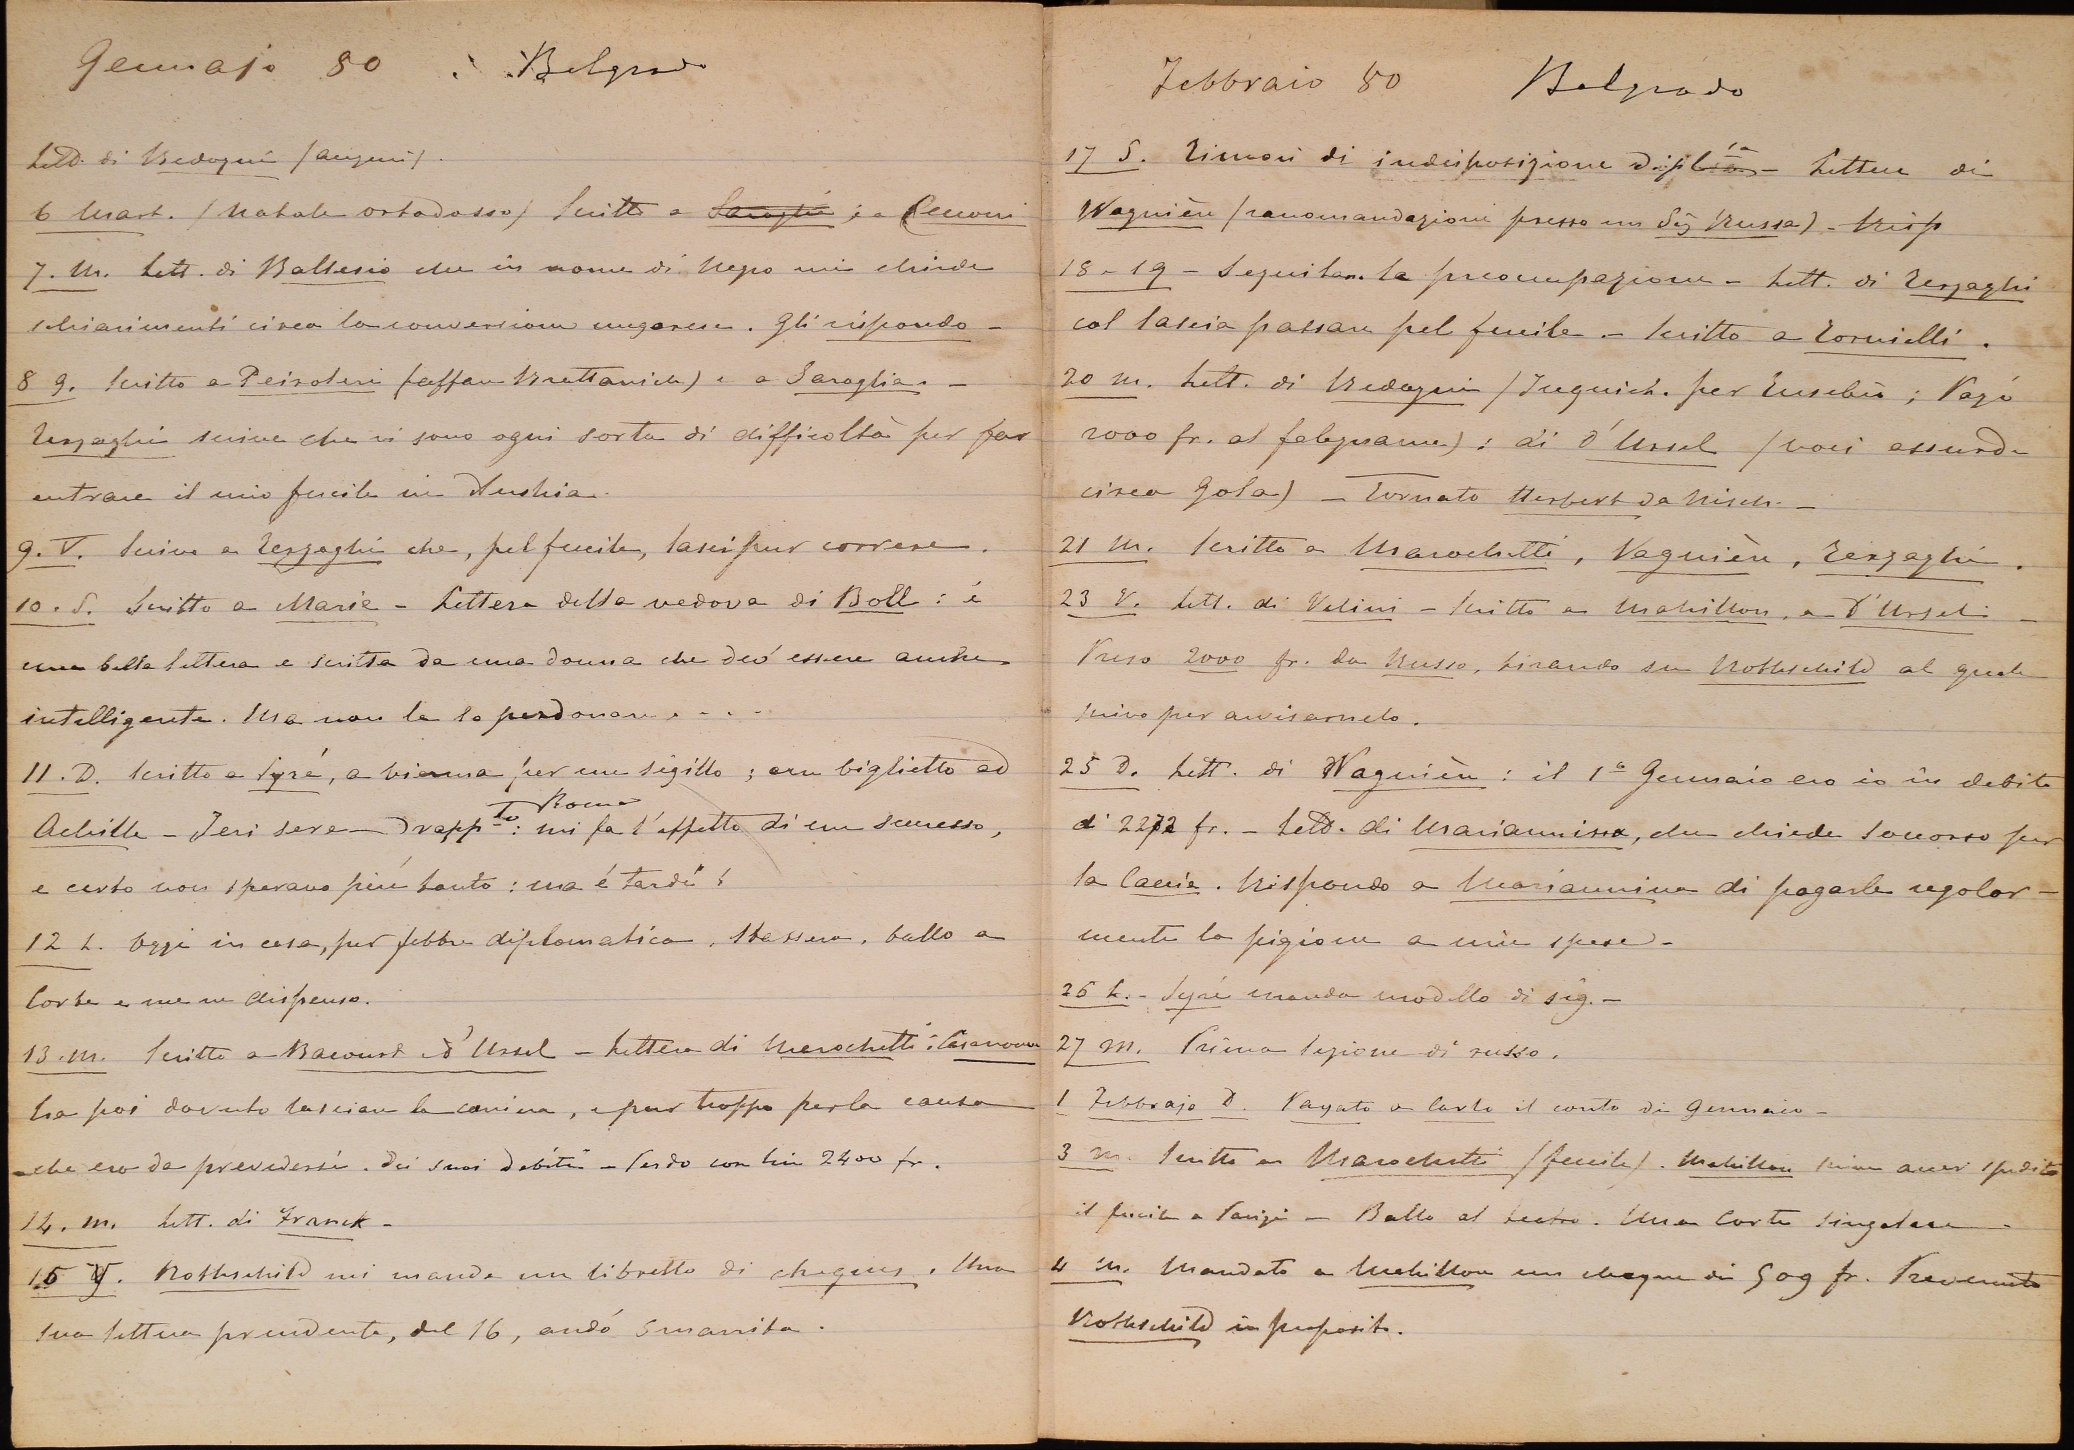 Gennajo 80 Belgrado
Lett. di Bedogni (auguri).
6 Mart. (Natale ortodosso) Scritto a Saroglia e a Cerroni
7. M. Lett. di Ballesio che in nome di Negro mi chiede
schiarimenti circa la conversione ungarese. Gli rispondo -
8 G. Scritto a Peiroleri (affare Brattanich) e a Saroglia. -
Terzaghi scrive che vi sono ogni sorta di difficoltà per far
entrare il mio fucile in Austria.
9. V. Scrivo a Terzaghi che, pel fucile, lasci pur correre.
10. S. Scritto a Marie - Lettera della vedova di Boll: é
una bella lettera e scritta da una donna che deó essere anche
intelligente. Ma non le so perdonare . . .
11. D. Scritto a Syré, a Vienna per un sigillo; a un biglietto ad
Achille - Jeri sera - Drapp-to Roma: mi fa l'effetto di un successo,
e certo non speravo piú tanto: ma é tardi!
12 L. Oggi in casa, per febbre diplomatica. Stassera, ballo a
Corte e me ne dispenso.
13. M. Scritto a Bacourt e d'Ursel - Lettera di Marochetti: Casanova
ha poi dovuto lasciare la carriera, e pur troppo per la causa
che era da prevedersi. Dei suoi debiti - Perdo con lui 2400 fr.
14. M. Lett. di Franck -
15 G. Rothschild mi manda un libretto di cheques. Una
sua lettera precedente, del 16, andó smarrita.
Febbraio 80 Belgrado
17 S. Timori di indisposizione dipl-ca - Lettera di
Wagnière (raccomandazioni presso un Sig Russa) - Risp
18 - 19 - Seguitan. la preoccupazione - Lett. di Terzaghi
col lascia passare pel fucile. - Scritto a Tornielli.
20 M. Lett. di Bedogni ( per Eusebio; Pagó
2000 fr. al falegname): di d'Ursel (voci assurde
circa Gola) - Tornato Herbert da Nisch. -
21 M. Scritto a Marochetti, Vagnière, Terzaghi.
23 V. Lett. di Velini - Scritto a Mahillon, a d'Ursel. -
Preso 2000 fr. da Russo, tirando su Rothschild al quale
scrivo per avvisarnelo.
25 D. Lett. di Wagnière: il 1° Gennaio ero io in debito
di 2272 fr. - Lett. di Mariannina, che chiede soccorso per
la Caccia. Rispondo a Mariannina di pagarle regolar-
mente la pigione a mie spese -
26 L. - Syré manda modello di sig. -
27 M. Prima lezione di russo.
1 Febbrajo D. Pagato a Carlo il conto di Gennaio -
3 M. Scritto a Marochetti (fucile). Mahillon scrive aver spedito
il fucile a Parigi - Ballo al teatro. Una Corte singolare -
4 M. Mandato a Mahillon un cheque di 509 fr. Prevenuto
Rothschild in proposito.